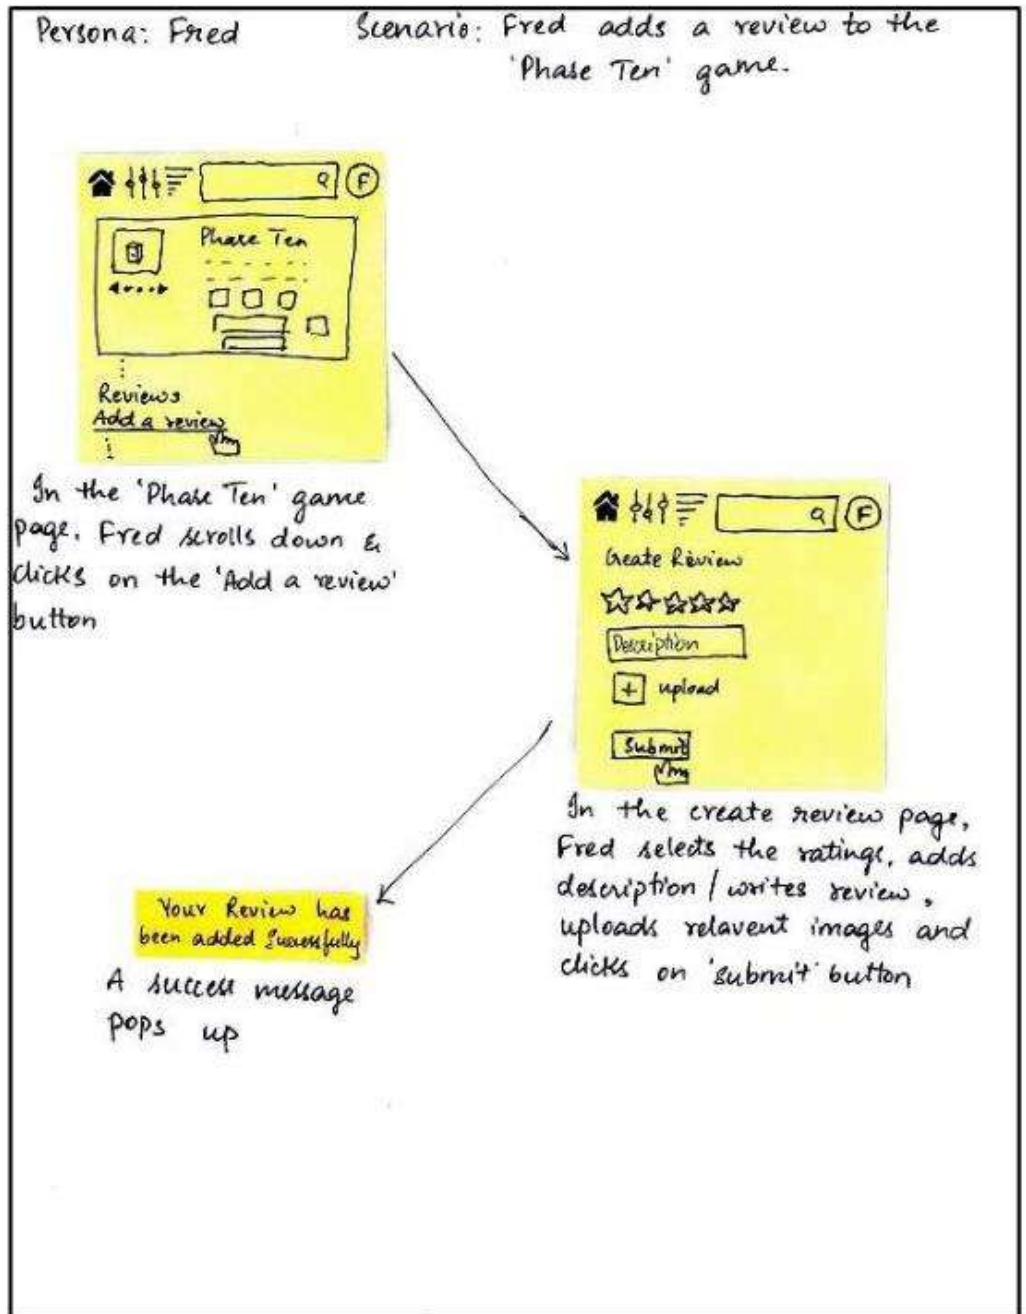 Persona: Fred
Scenario: Fred adds a review to the
'Phase Ten' game.
F
Phase Ten
Reviews
Add a review
In the 'Phase Ten' game
page, Fred scrolls down &
clicks on the 'Add a review'
button
F
Create Review
Description
+ upload
Submit
In the create review page,
Fred selects the ratings, adds
description / writes review,
uploads relavent images and
clicks on 'submit' button
Your Review has
been added Successfully
A success message
pops up